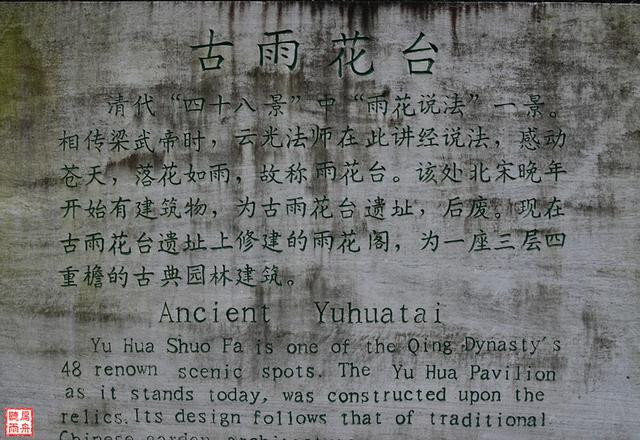 古雨花台
清代“四十八景”中“雨花说法”一景。
相传梁武帝时，云光法师在此讲经说法，感动
苍天，落花如雨，故称雨花台。该处北宋晚年
开始有建筑物，为古雨花台遗址，后废。现在
古雨花台遗址上修建的雨花阁，为一座三层四
重檐的古典园林建筑。
Ancient Yuhuatai
Yu Hua Shuo Fa is one of the Qing Dynasty's
48 renown scenic spots. The Yu Hua Pavilion
as it stands today, was constructed upon the
relics. Its design follows that of traditional
Chinese garden